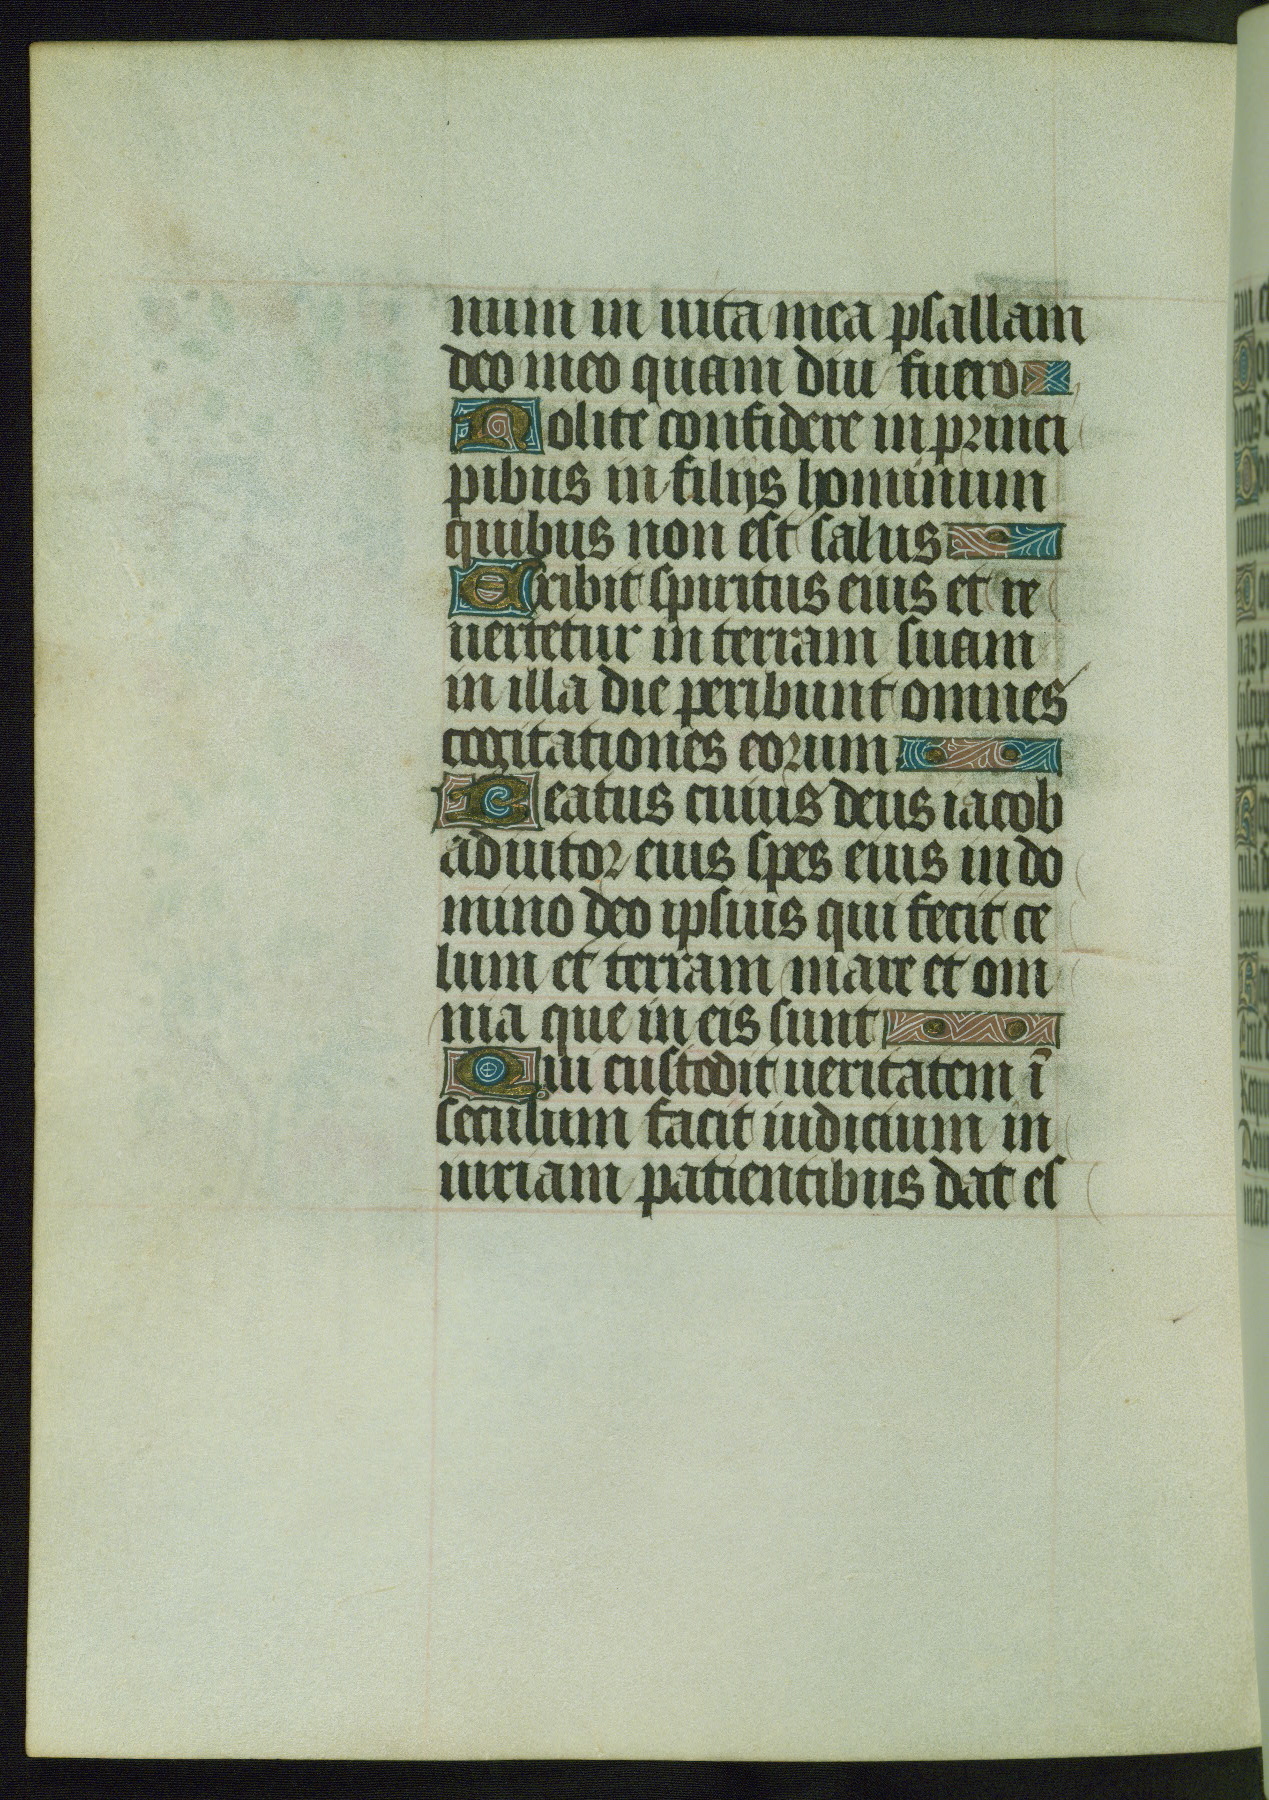 num in uita mea psallam
deo meo quam diu fuero
Nolite confidere in princi
pibus in filijs hominum
quibus non est salus
Exibit spiritus eius et re
uertetur in terram suam
in illa die peribunt omnes
cogitationes eorum
Beatus cuius deus iacob
adiutor eius spes eius in do
mino deo ipsius qui fecit ce
lum et terram mare et om
nia que in eis sunt
Qui custodit ueritatem ī
seculum facit iudicium in
iuriam patientibus dat es